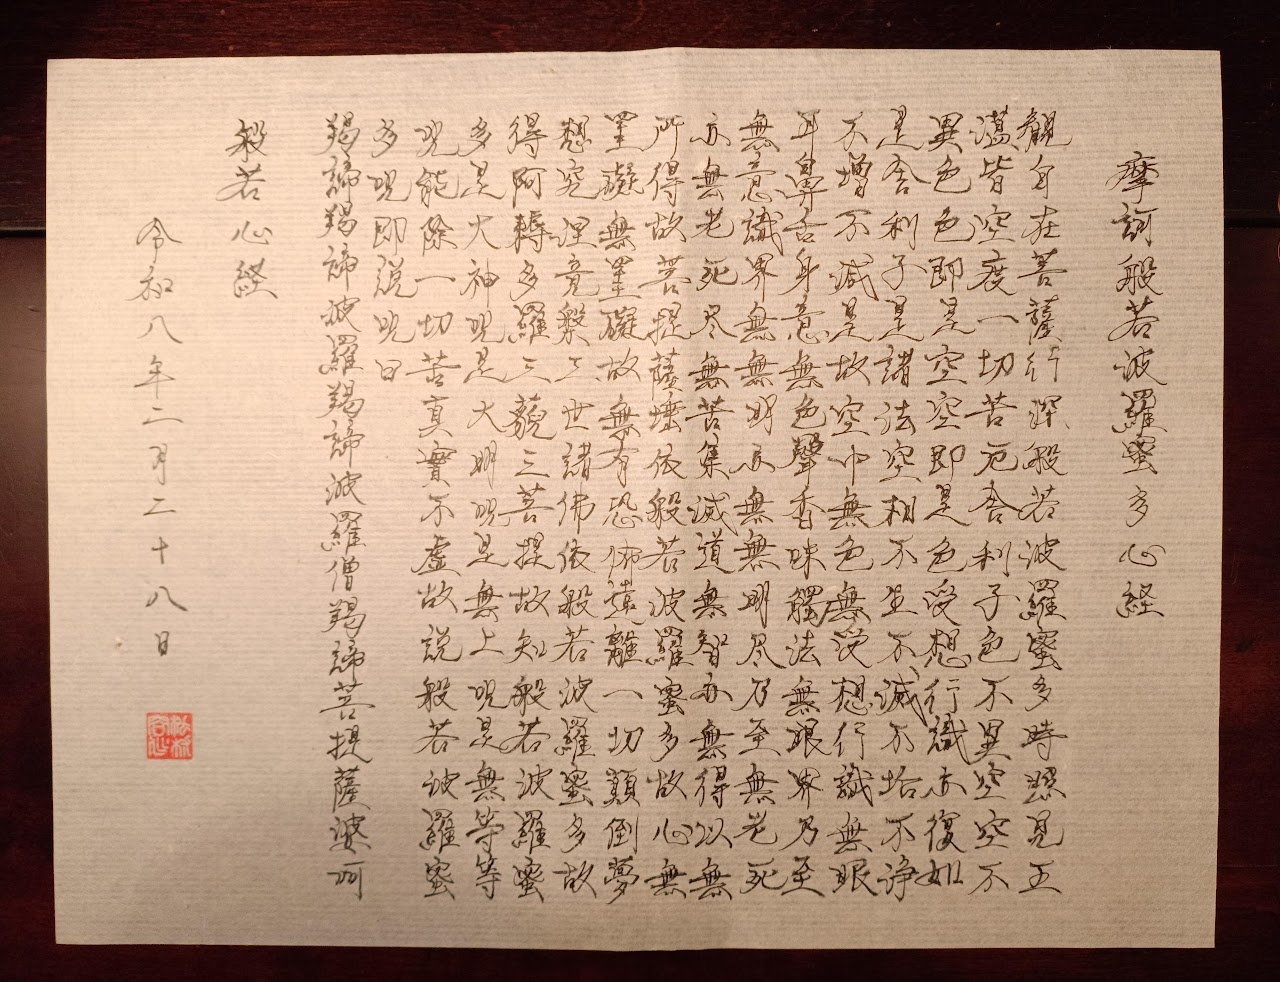 摩訶般若波羅蜜多心経
觀自在菩薩行深般若波羅蜜多時照見五
蘊皆空度一切苦厄舎利子色不異空空不
異色色即是空空即是色受想行識亦復如
是舎利子是諸法空相不生不滅不垢不浄
不増不減是故空中無色無受想行識無眼
耳鼻舌身意無色聲香味觸法無眼界乃至
無意識界無無明亦無無明尽乃至無老死
亦無老死尽無苦集滅道無智亦無得以無
所得故菩提薩埵依般若波羅蜜多故心無
罣礙無罣礙故無有恐怖遠離一切顛倒夢
想究涅竟槃三世諸佛依般若波羅蜜多故
得阿耨多羅三藐三菩提故知般若波羅蜜
多是大神呪是大明呪是無上呪是無等等
呪能除一切苦真實不虚故説般若波羅蜜
多呪即説呪曰
羯諦羯諦波羅羯諦波羅僧羯諦菩提薩婆訶
般若心経
令和八年二月二十八日